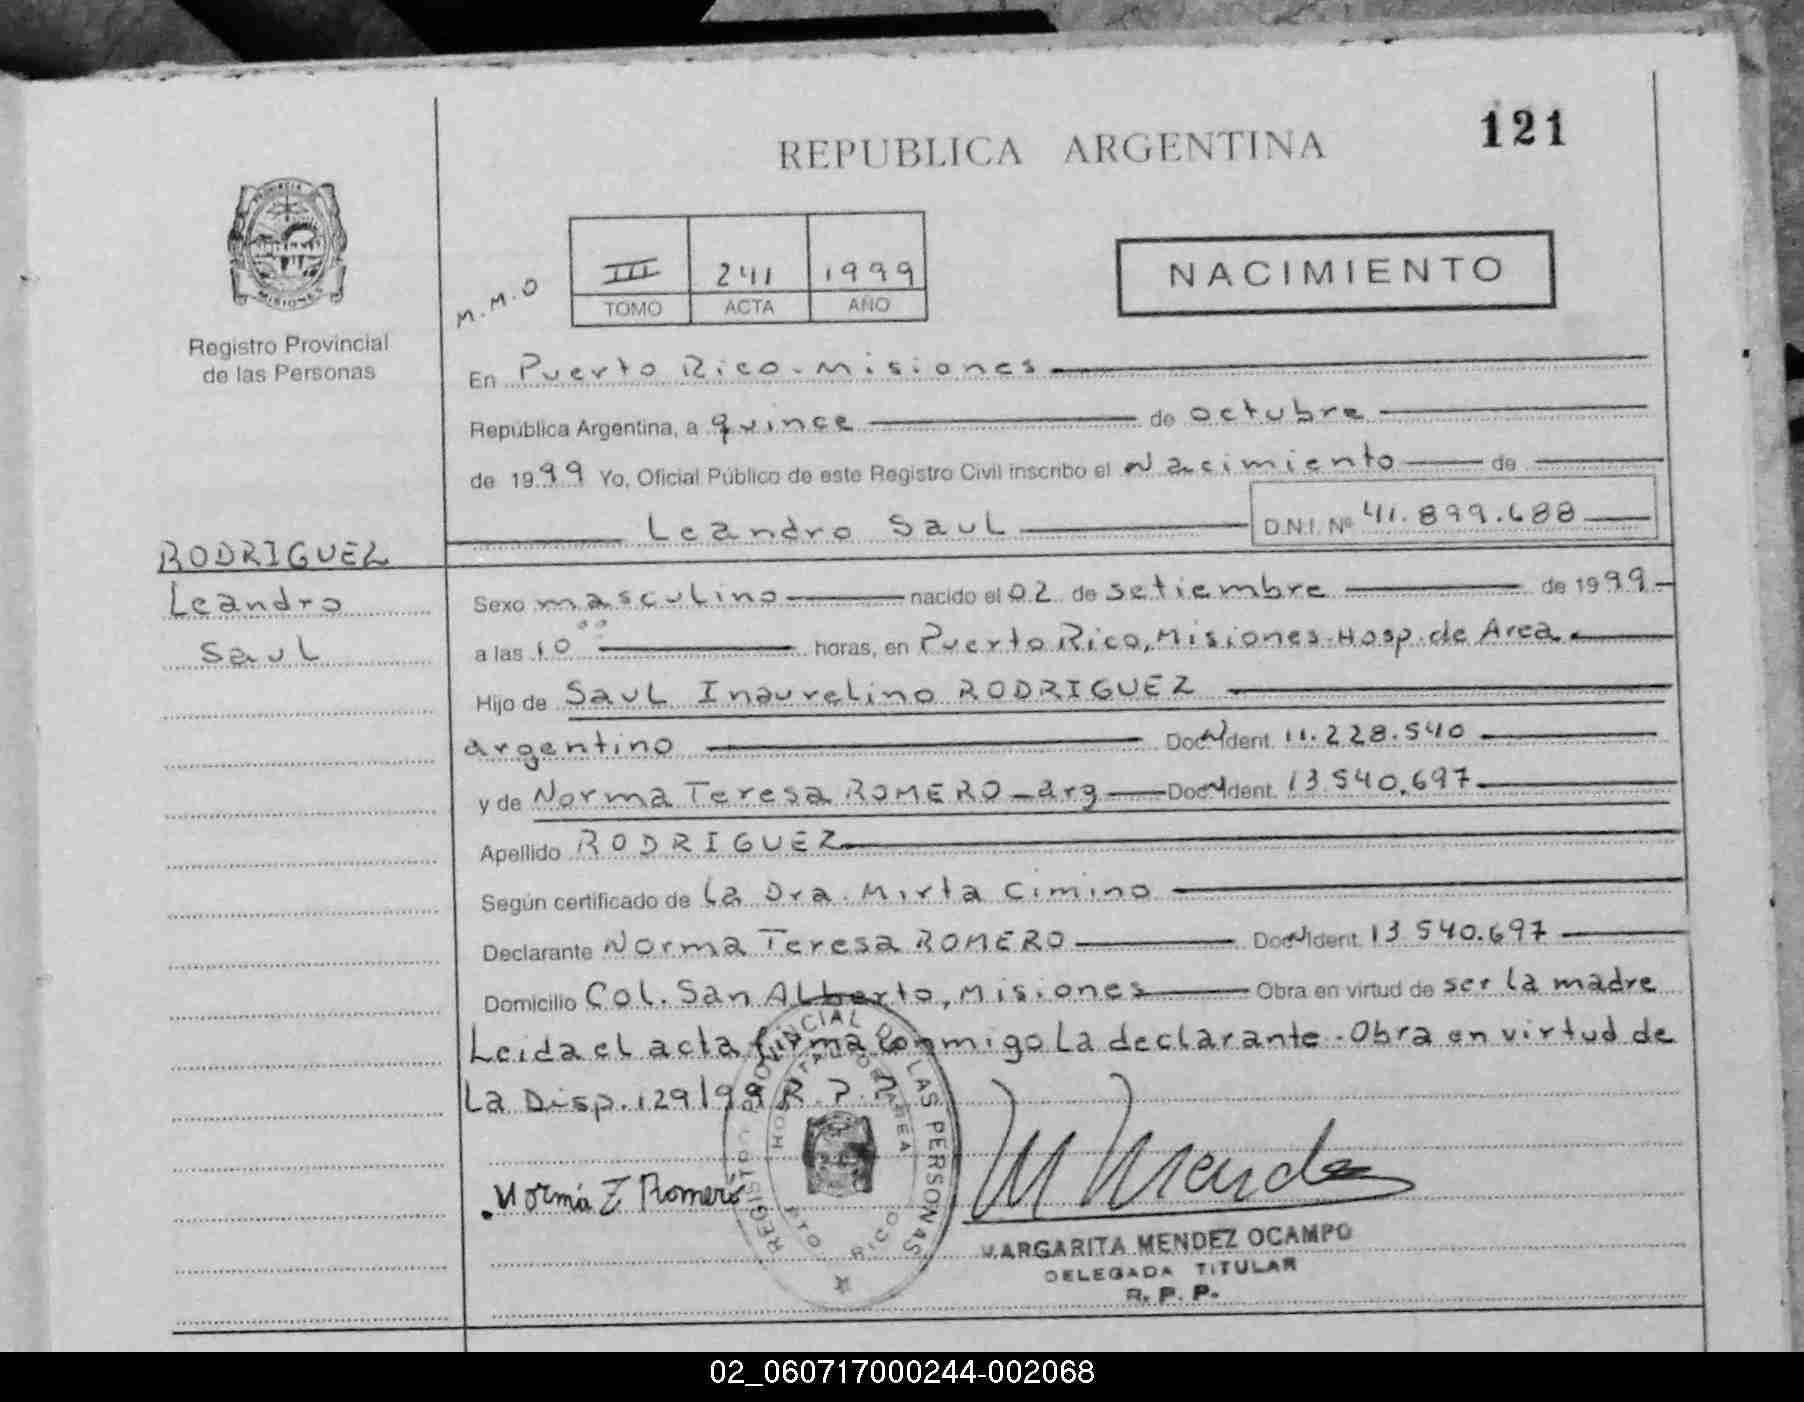 REPUBLICA ARGENTINA
121
PROVINCIA
MISIONES
Registro Provincial
de las Personas
M.M.O
III 241 1999
TOMO ACTA AÑO
NACIMIENTO
En Puerto Rico - Misiones
República Argentina, a quince de octubre
de 1999 Yo, Oficial Público de este Registro Civil inscribo el Nacimiento de
Leandro Saul D.N.I. Nº 41.899.688
RODRIGUEZ
Leandro
Saul
Sexo masculino nacido el 02 de setiembre de 1999
a las 10 00 horas, en Puerto Rico, Misiones-Hosp. de Area
Hijo de Saul Inaurelino RODRIGUEZ
argentino Doc. Ident. 11.228.540
y de Norma Teresa ROMERO - arg Doc. Ident. 13.540.697
Apellido RODRIGUEZ
Según certificado de La Dra. Mirta Cimino
Declarante Norma Teresa ROMERO Doc. Ident. 13.540.697
Domicilio Col. San Alberto, Misiones Obra en virtud de ser la madre
Leida el acta firma conmigo La declarante - Obra en virtud de
La Disp. 129/99 R.P.P.
REGISTRO PROVINCIAL DE LAS PERSONAS
HOSPITAL DE AREA
PTO. RICO
Norma T Romero
M Mendez
MARGARITA MENDEZ OCAMPO
DELEGADA TITULAR
R. P. P.
02_060717000244-002068